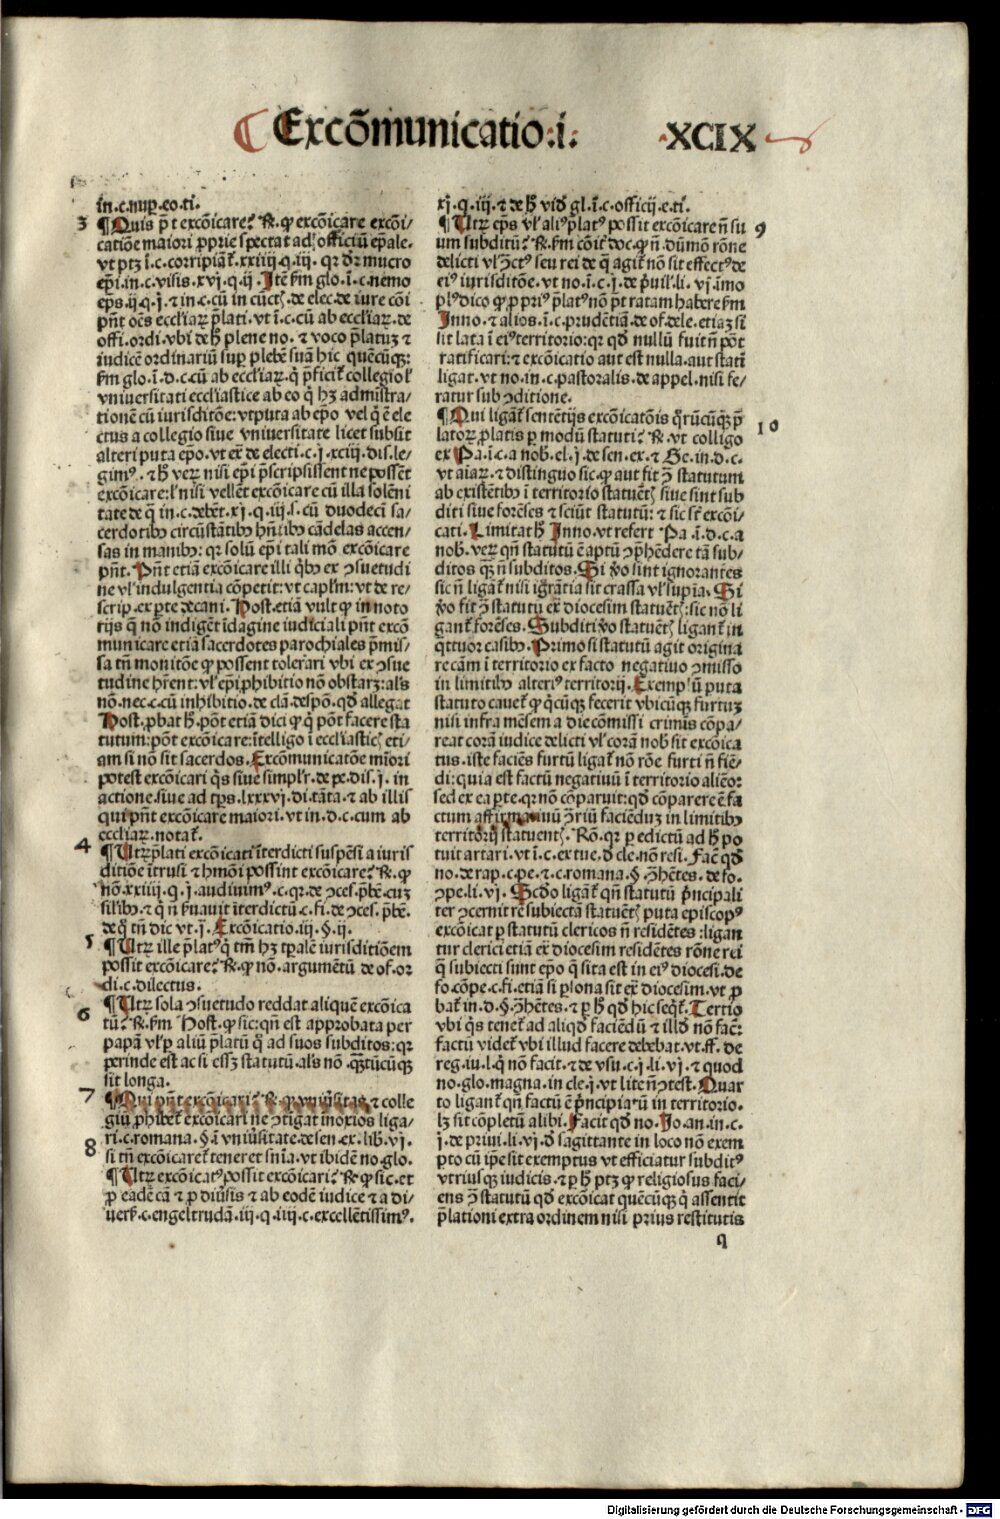 Excōmunicatio.i. XCIX
in.c.nuꝑ.eo.ti.
3 ¶Quis pōt excōicare? R̄.ꝙ excōicare excōi-
catiōe maiori ꝓprie spectat ad officiū ep̄ale.
vt ptꝫ ī.c.corripiāt̄.xxiiij.q.iij. qꝛ dr̄ mucro
ep̄i.in.c.visis.xvj.q.ij. Itē km̄ glo.ī.c.nemo
ep̄s.ij.q.j.⁊ in.c.cū in cūctꝭ.de elec.de iure cōi
pn̄t oēs eccl̄iaꝝ p̄lati.vt ī.c.cū ab eccl̄iaꝝ.de
offi.ordi.vbi de h̄ plene no.⁊ voco p̄latuꝫ ⁊
iudicē ordinariū suꝑ plebē suā hic quēcūqꝫ:
km̄ glo.ī.d.c.cū ab eccl̄iaꝝ.q̄ p̄ficit̄ collegio l̓
vniuersitati eccl̄iastice ab eo q̄ hꝫ admistra-
tionē cū iurisditōe: vtputa ab ep̄o vel q̄ ē ele
ctus a collegio siue vniuersitate licet subsit
alteri puta ep̄o.vt ex̄ de electi.c.j.xciij.dis.le-
gimꝰ.⁊ h̄ veꝝ nisi ep̄i p̄scripsissent ne possēt
excōicare: l̓ nisi vellēt excōicare cū illa solēni
tate de q̄ in.c.debēt.xj.q.iij.s.cū duodeci sa-
cerdotibꝰ circūstātibꝰ hn̄tibꝰ cādelas accen-
sas in manibꝰ: qꝛ solū ep̄i tali mō excōicare
pn̄t. Pn̄t etiā excōicare illi q̄bꝰ ex ꝯsuetudi
ne vl̓ indulgentia cōpetit: vt capl̄m: vt de re-
scrip.ex ꝑte decani. Host.etiā vult ꝙ in noto
rijs q̄ nō indigēt īdagine iudiciali pn̄t excō
municare etiā sacerdotes parochiales p̄mis-
sa tn̄ monitōe ꝙ possent tolerari vbi ex ꝯsue
tudine hr̄ent: vl̓ ep̄i ꝓhibitio nō obstaꝫ: al̄s
nō.nec.c.cū inhibitio.de clā.despō.qd̄ allegat
Host.ꝓbat h̄.pōt etiā dici ꝙ q̄ pōt facere sta
tutum: pōt excōicare: īelligo ī eccl̄iasticꝭ eti-
am si nō sit sacerdos. Excōmunicatōe mīori
potest excōicari q̄s siue simplr̄.de pe.dis.j. in
actione.siue ad tꝑs.lxxxvj.di.tāta.⁊ ab illis
qui pn̄t excōicare maiori.vt in.d.c.cum ab
eccl̄iaꝝ.notat̄.
4 ¶Utꝝ p̄lati excōicati īterdicti suspēsi a iuris
ditiōe ītrusi ⁊ hmōi possint excōicare? R̄.ꝙ
nō.xxiiij.q.j.audiuimꝰ.c.qꝛ.de ꝯces.p̄bē.cuꝫ
silibꝰ.⁊ q̄ n̄ fuauit īterdictū.c.fi.de ꝯces.p̄bē.
de q̄ tn̄ dic vt.j. Excōicatio.iij.§.ij.
5 ¶Utꝝ ille p̄latꝰ q̄ tm̄ hꝫ tꝑalē iurisditiōem
possit excōicare? R̄.ꝙ nō.argumētū de of.or
di.c.dilectus.
6 ¶Utꝝ sola ꝯsuetudo reddat aliquē excōica
tū? R̄.km̄ Host.ꝙ sic: qn̄ est approbata per
papā vl̓ ꝑ aliū p̄latū q̄ ad suos subditos: qꝛ
perinde est ac si eēꝫ statutū.al̄s nō.q̄ꝫtūcūqꝫ
sit longa.
7 ¶Qui pn̄t excōicari? R̄.ꝙ vniūsitas ⁊ colle
giū ꝓhibet̄ excōicari ne ꝯtigat inoxios liga-
ri.c.romana.§.ī vniūsitate.de sen.ex.lib.vj.
si tn̄ excōicaret̄ teneret sn̄ia.vt ibidē no.glo.
8 ¶Utꝝ excōicatꝰ possit excōicari? R̄.ꝙ sic.et
ꝓ eadē cā ⁊ ꝓ diūsis ⁊ ab eodē iudice ⁊ a di-
uers̄.c.engeltrudā.iij.q.iiij.c.excellētissimꝰ.
xj.q.iij.⁊ de h̄ vid̄ gl.ī.c.officij.e.ti.
9 ¶Utꝝ ep̄s vl̓ aliꝰ p̄latꝰ possit excōicare n̄ su
um subditū? R̄.km̄ cōit̄ doc.ꝙ n̄.dūmō rōne
delicti vl̓ ꝯctꝰ seu rei de q̄ agit̄ nō sit effectꝰ de
eiꝰ iurisditōe.vt no.ī.c.j.de p̄uil.li.vj.īmo
plꝰ dico ꝙ ꝓpriꝰ p̄latꝰ nō pōt ratam habere km̄
Inno.⁊ alios.ī.c.prudētiā.de of.dele.etiaꝫ si
sit lata ī eiꝰ territorio: qꝛ qd̄ nullū fuit n̄ pōt
ratificari: ⁊ excōicatio aut est nulla.aut statī
ligat.vt no.in.c.pastoralis.de appel.nisi fe-
ratur sub ꝯditione.
10 ¶Qui ligāt̄ sentētijs excōicatōis q̄rūcūqꝫ p̄
latoꝝ ꝓlatis ꝑ modū statuti? R̄.vt colligo
ex Pa.ī.c.a nob.el.j.de sen.ex.⁊ Ge.in.d.c.
vt aīaꝝ.⁊ distinguo sic.ꝙ aut fit ꝯ statutum
ab existētibꝰ ī territorio statuētꝭ siue sint sub
diti siue forēses ⁊ sciūt statutū: ⁊ sic st̄ excōi-
cati. Limitat h̄ Inno.vt refert Pa.ī.d.c.a
nob.veꝝ qn̄ statutū ē aptū ꝯp̄hēdere tā sub-
ditos q̄ꝫ n̄ subditos. Si v̓o sint ignorantes
sic n̄ ligāt̄ nisi igr̄antia sit crassa vl̓ supīa. Si
v̓o fit ꝯ statutū ex̄ diocesim statuētꝭ: sic nō li
gant̄ forēses. Subditi v̓o statuētꝭ ligant̄ in
q̄ttuor casibꝰ. Primo si statutū agit origina
re cām ī territorio ex facto negatiuo ꝯmisso
in limitibꝰ alteriꝰ territorij. Exemplū puta
statuto cauet̄ ꝙ q̄cūqꝫ fecerit vbicūqꝫ furtuꝫ
nisi infra mēsem a die cōmissi crimīs cōpa-
reat corā iudice delicti vl̓ corā nob̄ sit excōica
tus.iste faciēs furtū ligat̄ nō rōe furti n̄ fiē-
di: quia est factū negatiuū ī territorio aliēo:
sed ex ea ꝑte.qꝛ nō cōparuit: qd̄ cōparere ē fa
ctum affirmatiuū ꝯriū faciēduꝫ in limitibꝰ
territorij statuentꝭ. Rō.qꝛ ꝑ edictū ad h̄ po
tuit artari.vt ī.c.ex tue.d̄ cle.nō resi. Fac̄ qd̄
no.de rap.c.pe.⁊.c.romana.§.ꝯhētes.de fo.
ꝯpe.li.vj. Scd̄o ligat̄ qn̄ statutū p̄ncipali
ter ꝯcernit rē subiectā statuētꝭ puta episcopꝰ
excōicat ꝑ statutū clericos n̄ residētes: ligan
tur clerici etiā ex̄ diocesim residētes rōne rei
q̄ subiecti sunt ep̄o q̄ sita est in eiꝰ diocesi.de
fo.cōpe.c.fi.etiā si ꝑsona sit ex̄ diocesim.vt ꝓ
bat̄ in.d.§.ꝯhētes.⁊ ꝑ h̄ qd̄ hic seq̄t̄. Tertio
vbi q̄s tenet̄ ad aliqd̄ faciēdū ⁊ illd̄ nō fac̄:
factū videt̄ vbi illud facere debebat.vt.ff. de
reg.iu.l.q̄ nō facit.⁊ de vsu.c.j.li.vj.⁊ quod
no.glo.magna.in cle.j.vt lite n̄ ꝯtest. Quar
to ligant̄ qn̄ factū ē p̄ncipiatū in territorio.
lꝫ sit cōpletū alibi. Facit qd̄ no.Jo.an.in.c.
j.de priui.li.vj.d̄ sagittante in loco nō exem
pto cū ip̄e sit exemptus vt efficiatur subditꝰ
vtriusqꝫ iudicis.⁊ ꝑ h̄ ptꝫ ꝙ religiosus faci-
ens ꝯ statutū qd̄ excōicat quēcūqꝫ q̄ assentit
p̄lationi extra ordinem nisi prius restitutis
q
Digitalisierung gefördert durch die Deutsche Forschungsgemeinschaft - DFG